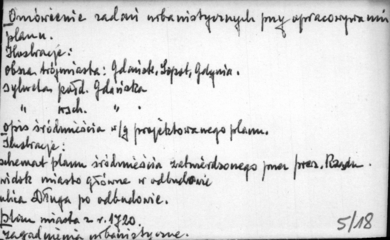 Omówienie zadań urbanistycznych przy opracowywaniu
planu.
Ilustracje:
obna trójmiasta: Gdańsk, Sopot, Gdynia.
sylweta połd. Gdańska
" wsch. "
Opis śródmieścia w/g projektowanego planu.
Ilustracje:
schemat planu śródmieścia zatwierdzonego przez prez. Rządu.
widok miasto główne w odbudowie
ulica Długa po odbudowie.
plan miasta z r. 1720.
zagadnienia urbanistyczne.
5/18